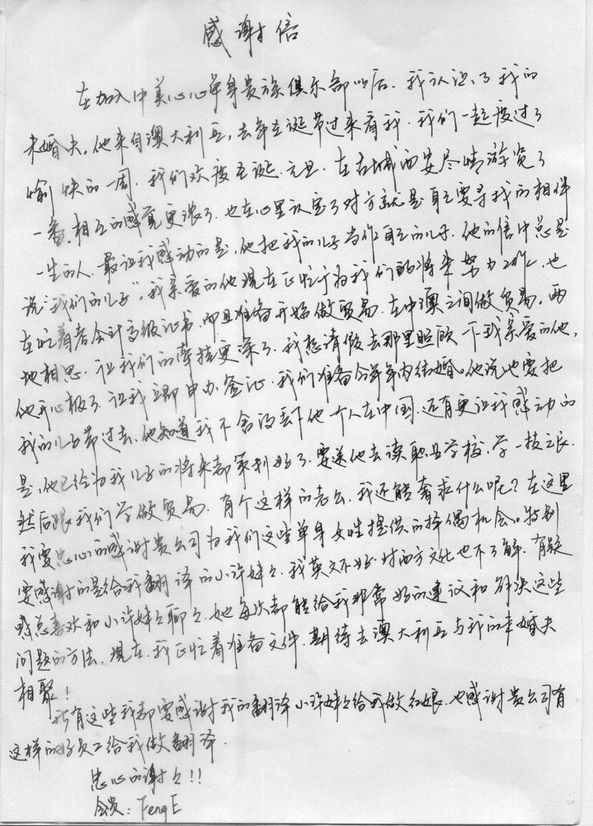 感谢信
在加入中美心心单身贵族俱乐部以后,我认识了我的
未婚夫。他来自澳大利亚,去年圣诞节过来看我。我们一起度过了
愉快的一周,我们欢度圣诞、元旦,在古城西安尽情游览了
一番,相互的感觉更浓了,也在心里认定了对方就是自己要寻找的相伴
一生的人。最让我感动的是,他把我的儿子当作自己的儿子,他的信中总是
说"我们的儿子"。我亲爱的他现在正忙于为我们的将来努力工作,也
在忙着考会计高级证书,而且准备开始做贸易,在中澳之间做贸易。两
地相思,让我们的牵挂更深了。我想请假去那里照顾一下我亲爱的他,
他开心极了,让我立即申办签证。我们准备今年年内结婚。他说也要把
我的儿子带过去,他知道我不舍得丢下他一个人在中国。还有更让我感动的
是,他已经为我儿子的将来都策划好了,要送他去读职业学校,学一技之长,
然后跟我们学做贸易。有个这样的老公,我还能奢求什么呢?在这里
我要忠心的感谢贵公司为我们这些单身女性提供的择偶机会。特别
要感谢的是给我翻译的小许妹妹。我英文不好,对西方文化也不了解,有疑
惑总喜欢和小许妹妹聊聊,她每次都能给我非常好的建议和解决这些
问题的方法。现在,我正忙着准备文件,期待去澳大利亚与我的未婚夫
相聚!
所有这些我都要感谢我的翻译小许妹妹给我做红娘,也感谢贵公司有
这样的好员工给我做翻译.
忠心的谢谢!!
会员:Feng E